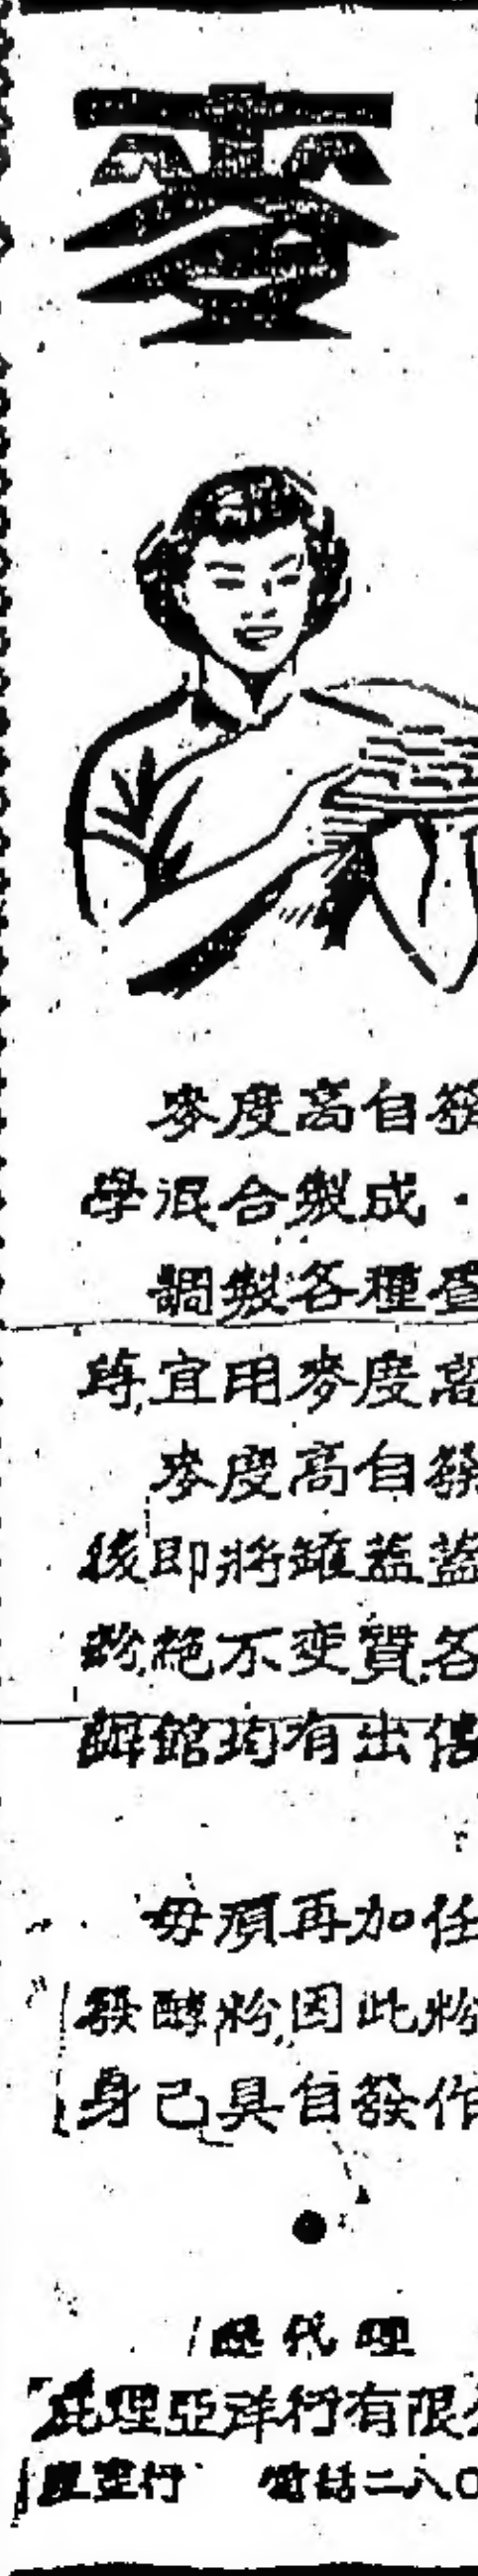 麥度高自發
學混合製成．
調製各種
時宜用麥度高
麥度高自發
後即將罐蓋蓋
粉絕不变質各
辦館均有出售
毋須再加任
發酵粉因此粉
身已具自發作
總代理
庇理亞洋行有限公
行 電話二八〇